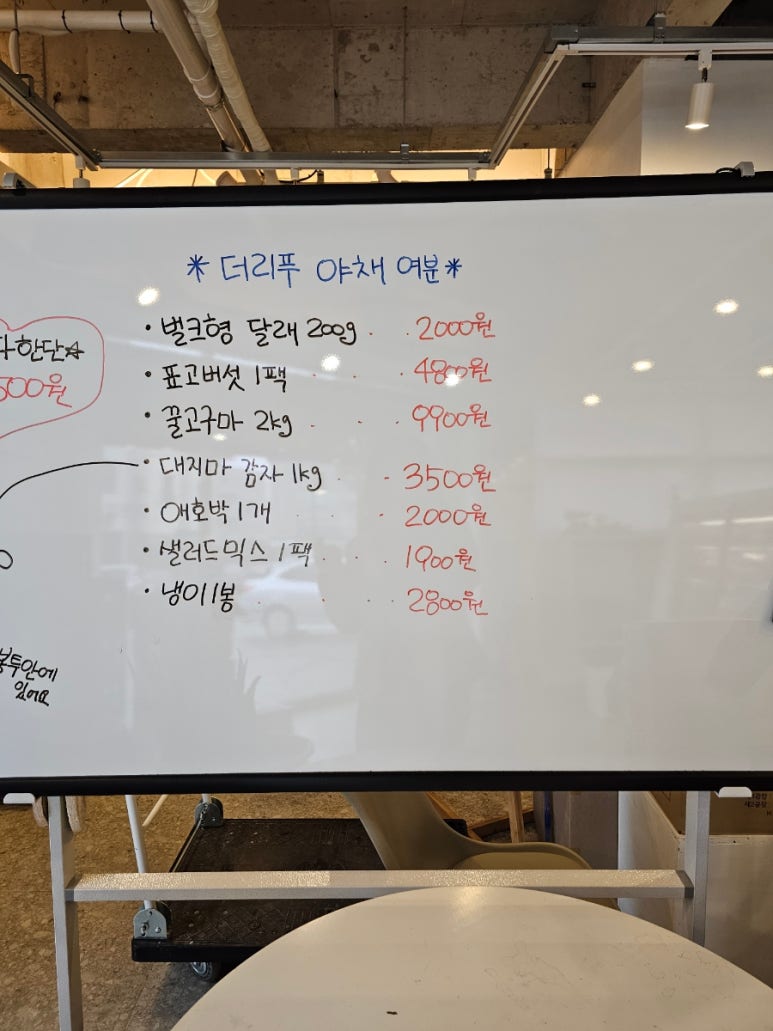 *더리푸 야채 여분*
· 벌크형 달래 200g . . 2000원
· 표고버섯 1팩 . . 4800원
· 꿀고구마 2kg . . . 9900원
· 대지마 감자 1kg . - 3500원
· 애호박 1개 . . . 2000원
· 샐러드믹스 1팩 . . . 1900원
· 냉이 1봉 . . . 2800원
한단☆
500원
봉투안에
있어요